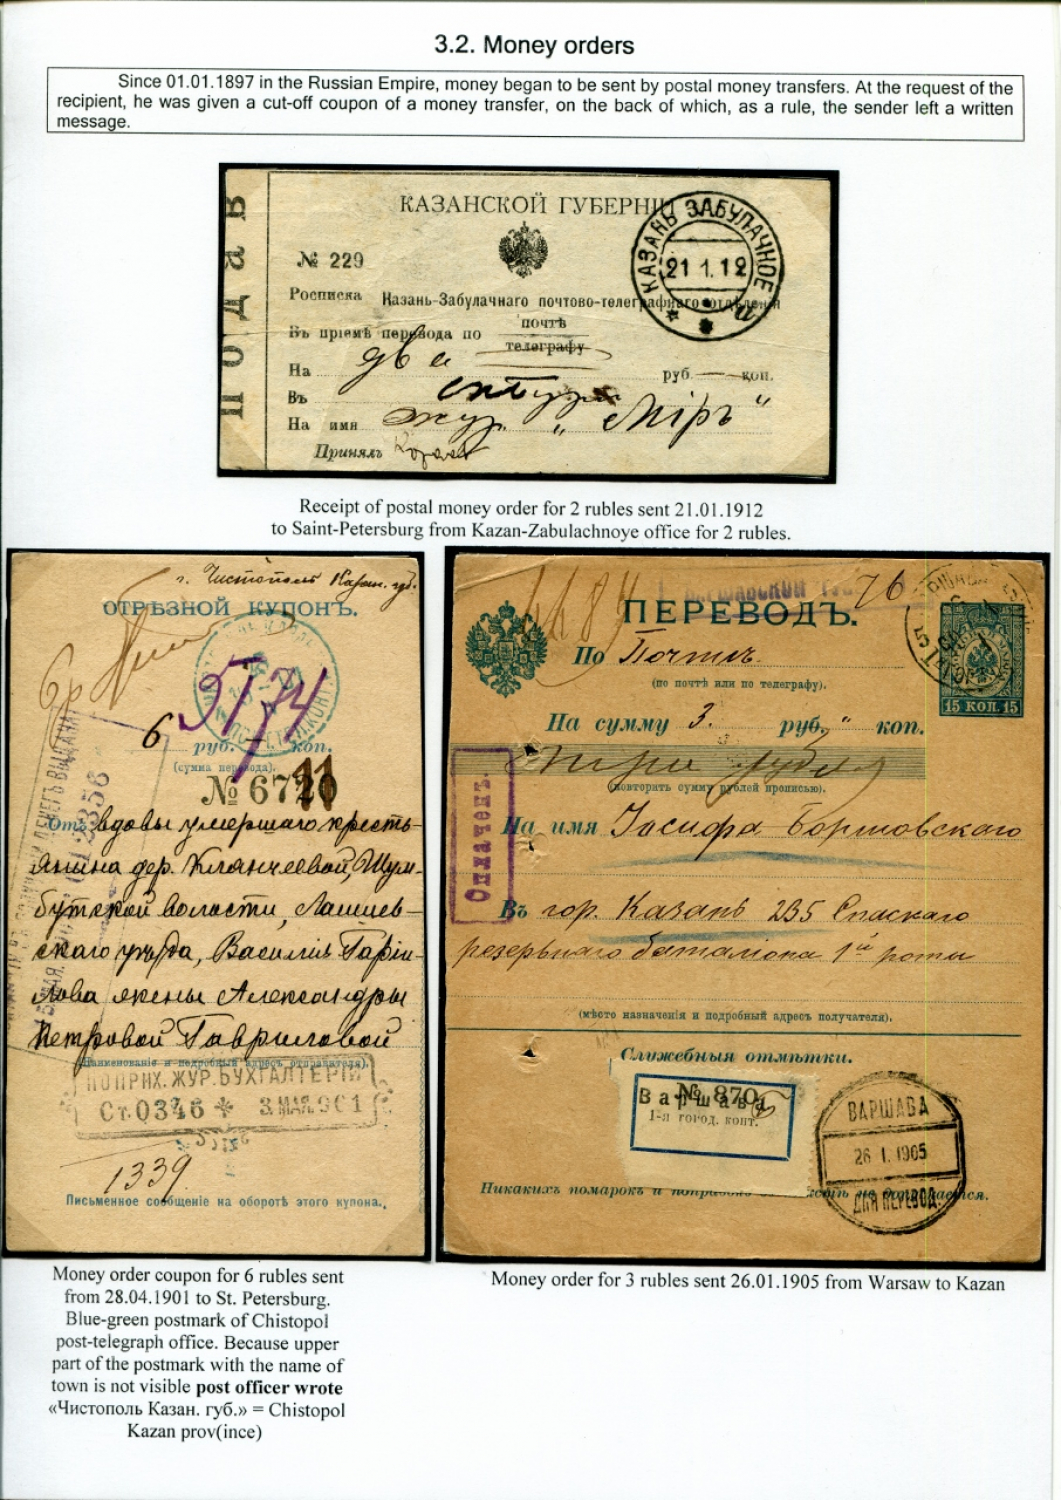 3.2. Money orders
Since 01.01.1897 in the Russian Empire, money began to be sent by postal money transfers. At the request of the
recipient, he was given a cut-off coupon of a money transfer, on the back of which, as a rule, the sender left a written
message.
КАЗАНСКОЙ ГУБЕРНІИ
КАЗАНЬ ЗАБУЛАЧНОЕ
21 1.12
№ 229
Росписка Казань-Забулачнаго почтово-телеграфнаго отдѣленія
Въ пріемѣ перевода по почтѣ
телеграфу
На два руб. — коп.
Въ
На имя жур. „Міръ“
Принялъ
Receipt of postal money order for 2 rubles sent 21.01.1912
to Saint-Petersburg from Kazan-Zabulachnoye office for 2 rubles.
г. Чистополь Казан. губ.
ОТРѢЗНОЙ КУПОНЪ.
6р
5174
6 руб. — коп.
(сумма перевода).
№ 6720
11
Отъ вдовы умершаго кресть-
янина дер. Кланчеевой, Шум-
бутской волости, Лаишев-
скаго уѣзда, Василія Гаври-
лова жены Александры
Петровой Гавриловой
(Наименованіе и подробный адресъ отправителя).
ПО ПРИХ. ЖУР. БУХГАЛТЕРІИ
Ст. 0346 * 3 МАЯ 901
1339
Письменное сообщеніе на оборотѣ этого купона.
ПЕРЕВОДЪ.
76
По Почтѣ.
(по почтѣ или по телеграфу).
15 КОП. 15
На сумму 3. руб. „ коп.
три рубля
(повторить сумму рублей прописью).
Оплаченъ.
На имя Іосифа Боржовскаго
Въ гор. Казань 235 Спаскаго
резервнаго баталіона 1й роты
(мѣсто назначенія и подробный адресъ получателя).
Служебныя отмѣтки.
№ 870
Варшава
1-я город. конт.
ВАРШАВА
26 1. 1905
ДЛЯ ПЕРЕВОД.
Никакихъ помарокъ и не допускается.
Money order coupon for 6 rubles sent
from 28.04.1901 to St. Petersburg.
Blue-green postmark of Chistopol
post-telegraph office. Because upper
part of the postmark with the name of
town is not visible post officer wrote
«Чистополь Казан. губ.» = Chistopol
Kazan prov(ince)
Money order for 3 rubles sent 26.01.1905 from Warsaw to Kazan